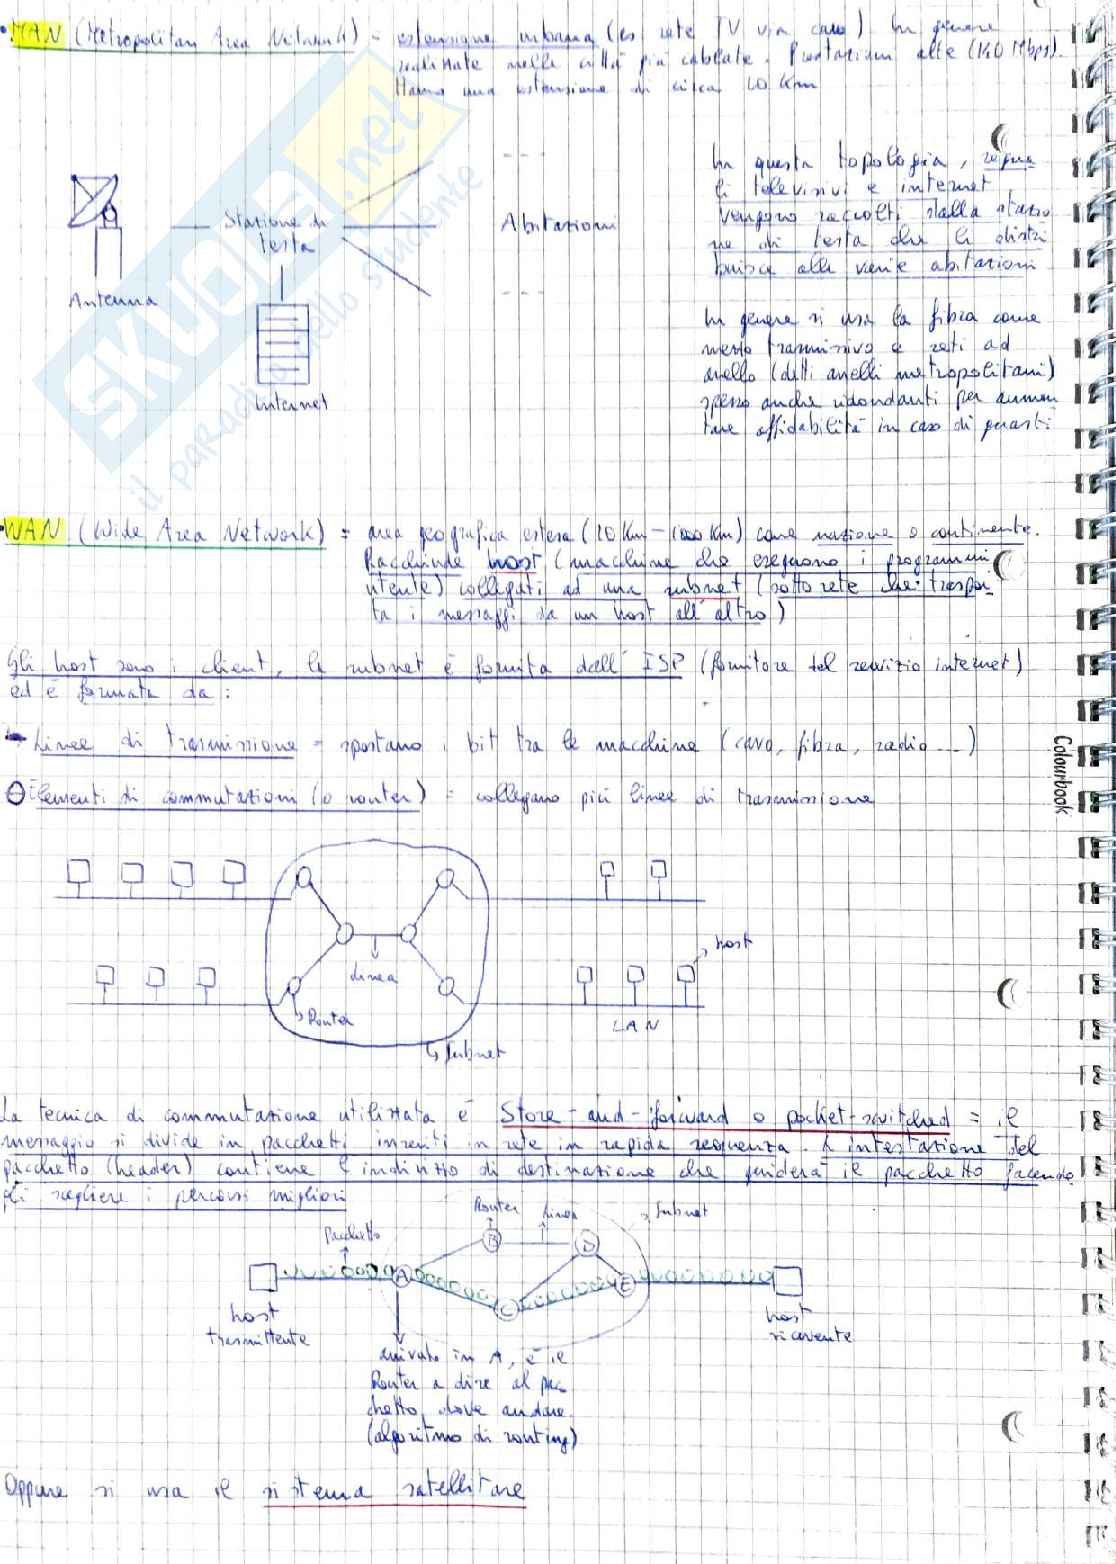 • MAN (Metropolitan Area Network) = estensione urbana (es rete TV via cavo). In genere
realizzate nelle città più cablate. Prestazioni alte (140 Mbps).
Hanno una estensione di circa 10 Km
In questa topologia, segna
li televisivi e internet
vengono raccolti dalla stazio
ne di testa che li distri
buisce alle varie abitazioni
Antenna
Stazione di
testa
Internet
Abitazioni
In genere si usa la fibra come
mezzo trasmissivo e reti ad
anello (detti anelli metropolitani)
spesso anche ridondanti per aumen
tare affidabilità in caso di guasti
• WAN (Wide Area Network) = area geografica estesa (10 Km - 1000 Km) come nazione o continente.
Racchiude host (macchine che eseguono i programmi
utente) collegati ad una subnet (sotto rete che traspor
ta i messaggi da un host all'altro)
Gli host sono i client, la subnet è fornita dall'ISP (fornitore del servizio internet)
ed è formata da:
Linee di trasmissione = spostano i bit tra le macchine (cavo, fibra, radio ...)
Elementi di commutazioni (o router) = collegano più linee di trasmissione
Linea
Router
Subnet
host
LAN
La tecnica di commutazione utilizzata è Store-and-forward o packet-switched = il
messaggio si divide in pacchetti inseriti in rete in rapida sequenza. L'intestazione del
pacchetto (header) contiene l'indirizzo di destinazione che guiderà il pacchetto facendo
gli scegliere i percorsi migliori
Router Linea Subnet
Pacchetto
A B C D E
host
trasmittente
host
ricevente
arrivato in A, è il
Router a dire al pac
chetto dove andare
(algoritmo di routing)
Oppure si usa il sistema satellitare
Colourbook
SKUOLA.net
il paradiso dello studente